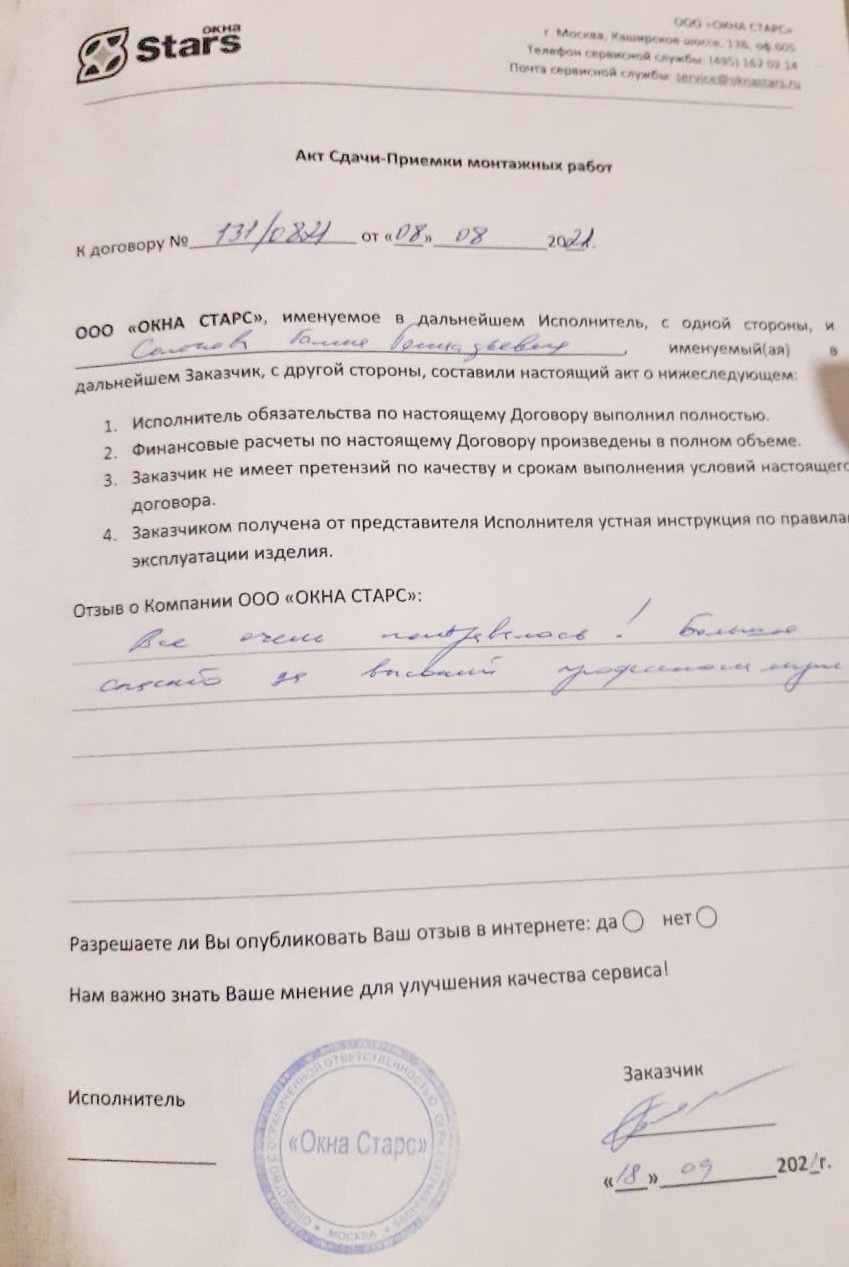 окна
Stars
ООО «ОКНА СТАРС»
г. Москва, Каширское шоссе, 138, оф 605
Телефон сервисной службы: (495) 167 09 14
Почта сервисной службы: service@oknastars.ru
Акт Сдачи-Приемки монтажных работ
К договору № 131/0821 от «08» 08 2021.
ООО «ОКНА СТАРС», именуемое в дальнейшем Исполнитель, с одной стороны, и
Галина Геннадьевна, именуемый(ая) в
дальнейшем Заказчик, с другой стороны, составили настоящий акт о нижеследующем:
1. Исполнитель обязательства по настоящему Договору выполнил полностью.
2. Финансовые расчеты по настоящему Договору произведены в полном объеме.
3. Заказчик не имеет претензий по качеству и срокам выполнения условий настоящего
договора.
4. Заказчиком получена от представителя Исполнителя устная инструкция по правилам
эксплуатации изделия.
Отзыв о Компании ООО «ОКНА СТАРС»:
Все очень понравилось! Большое
спасибо за высокий профессионализм
Разрешаете ли Вы опубликовать Ваш отзыв в интернете: да нет
Нам важно знать Ваше мнение для улучшения качества сервиса!
Исполнитель
Заказчик
ОБЩЕСТВО С ОГРАНИЧЕННОЙ ОТВЕТСТВЕННОСТЬЮ
«Окна Старс»
МОСКВА
«18» 09 2021г.